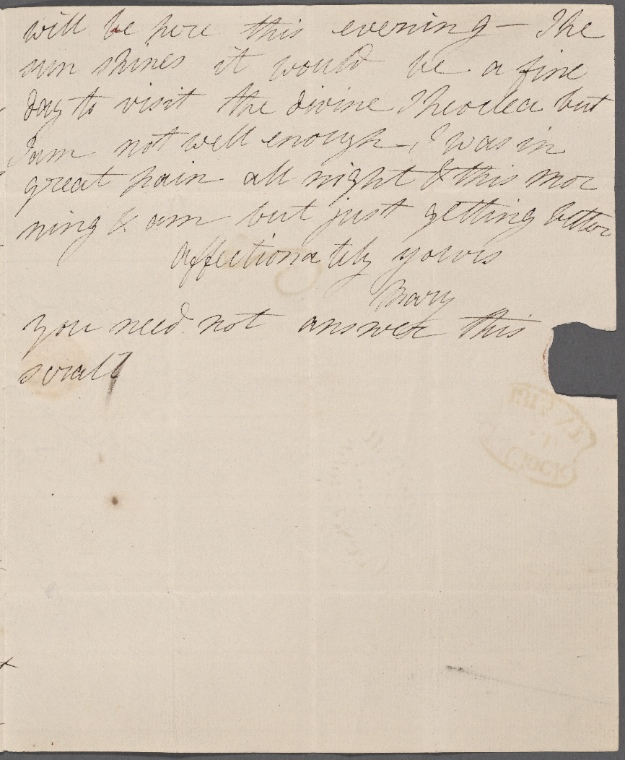 will be here this evening — The
sun shines it would be a fine
day to visit the divine Theoclea but
I am not well enough. I was in
great pain all night & this mor
ning & am but just getting better
affectionately yours
Mary
you need not answer this
scrall